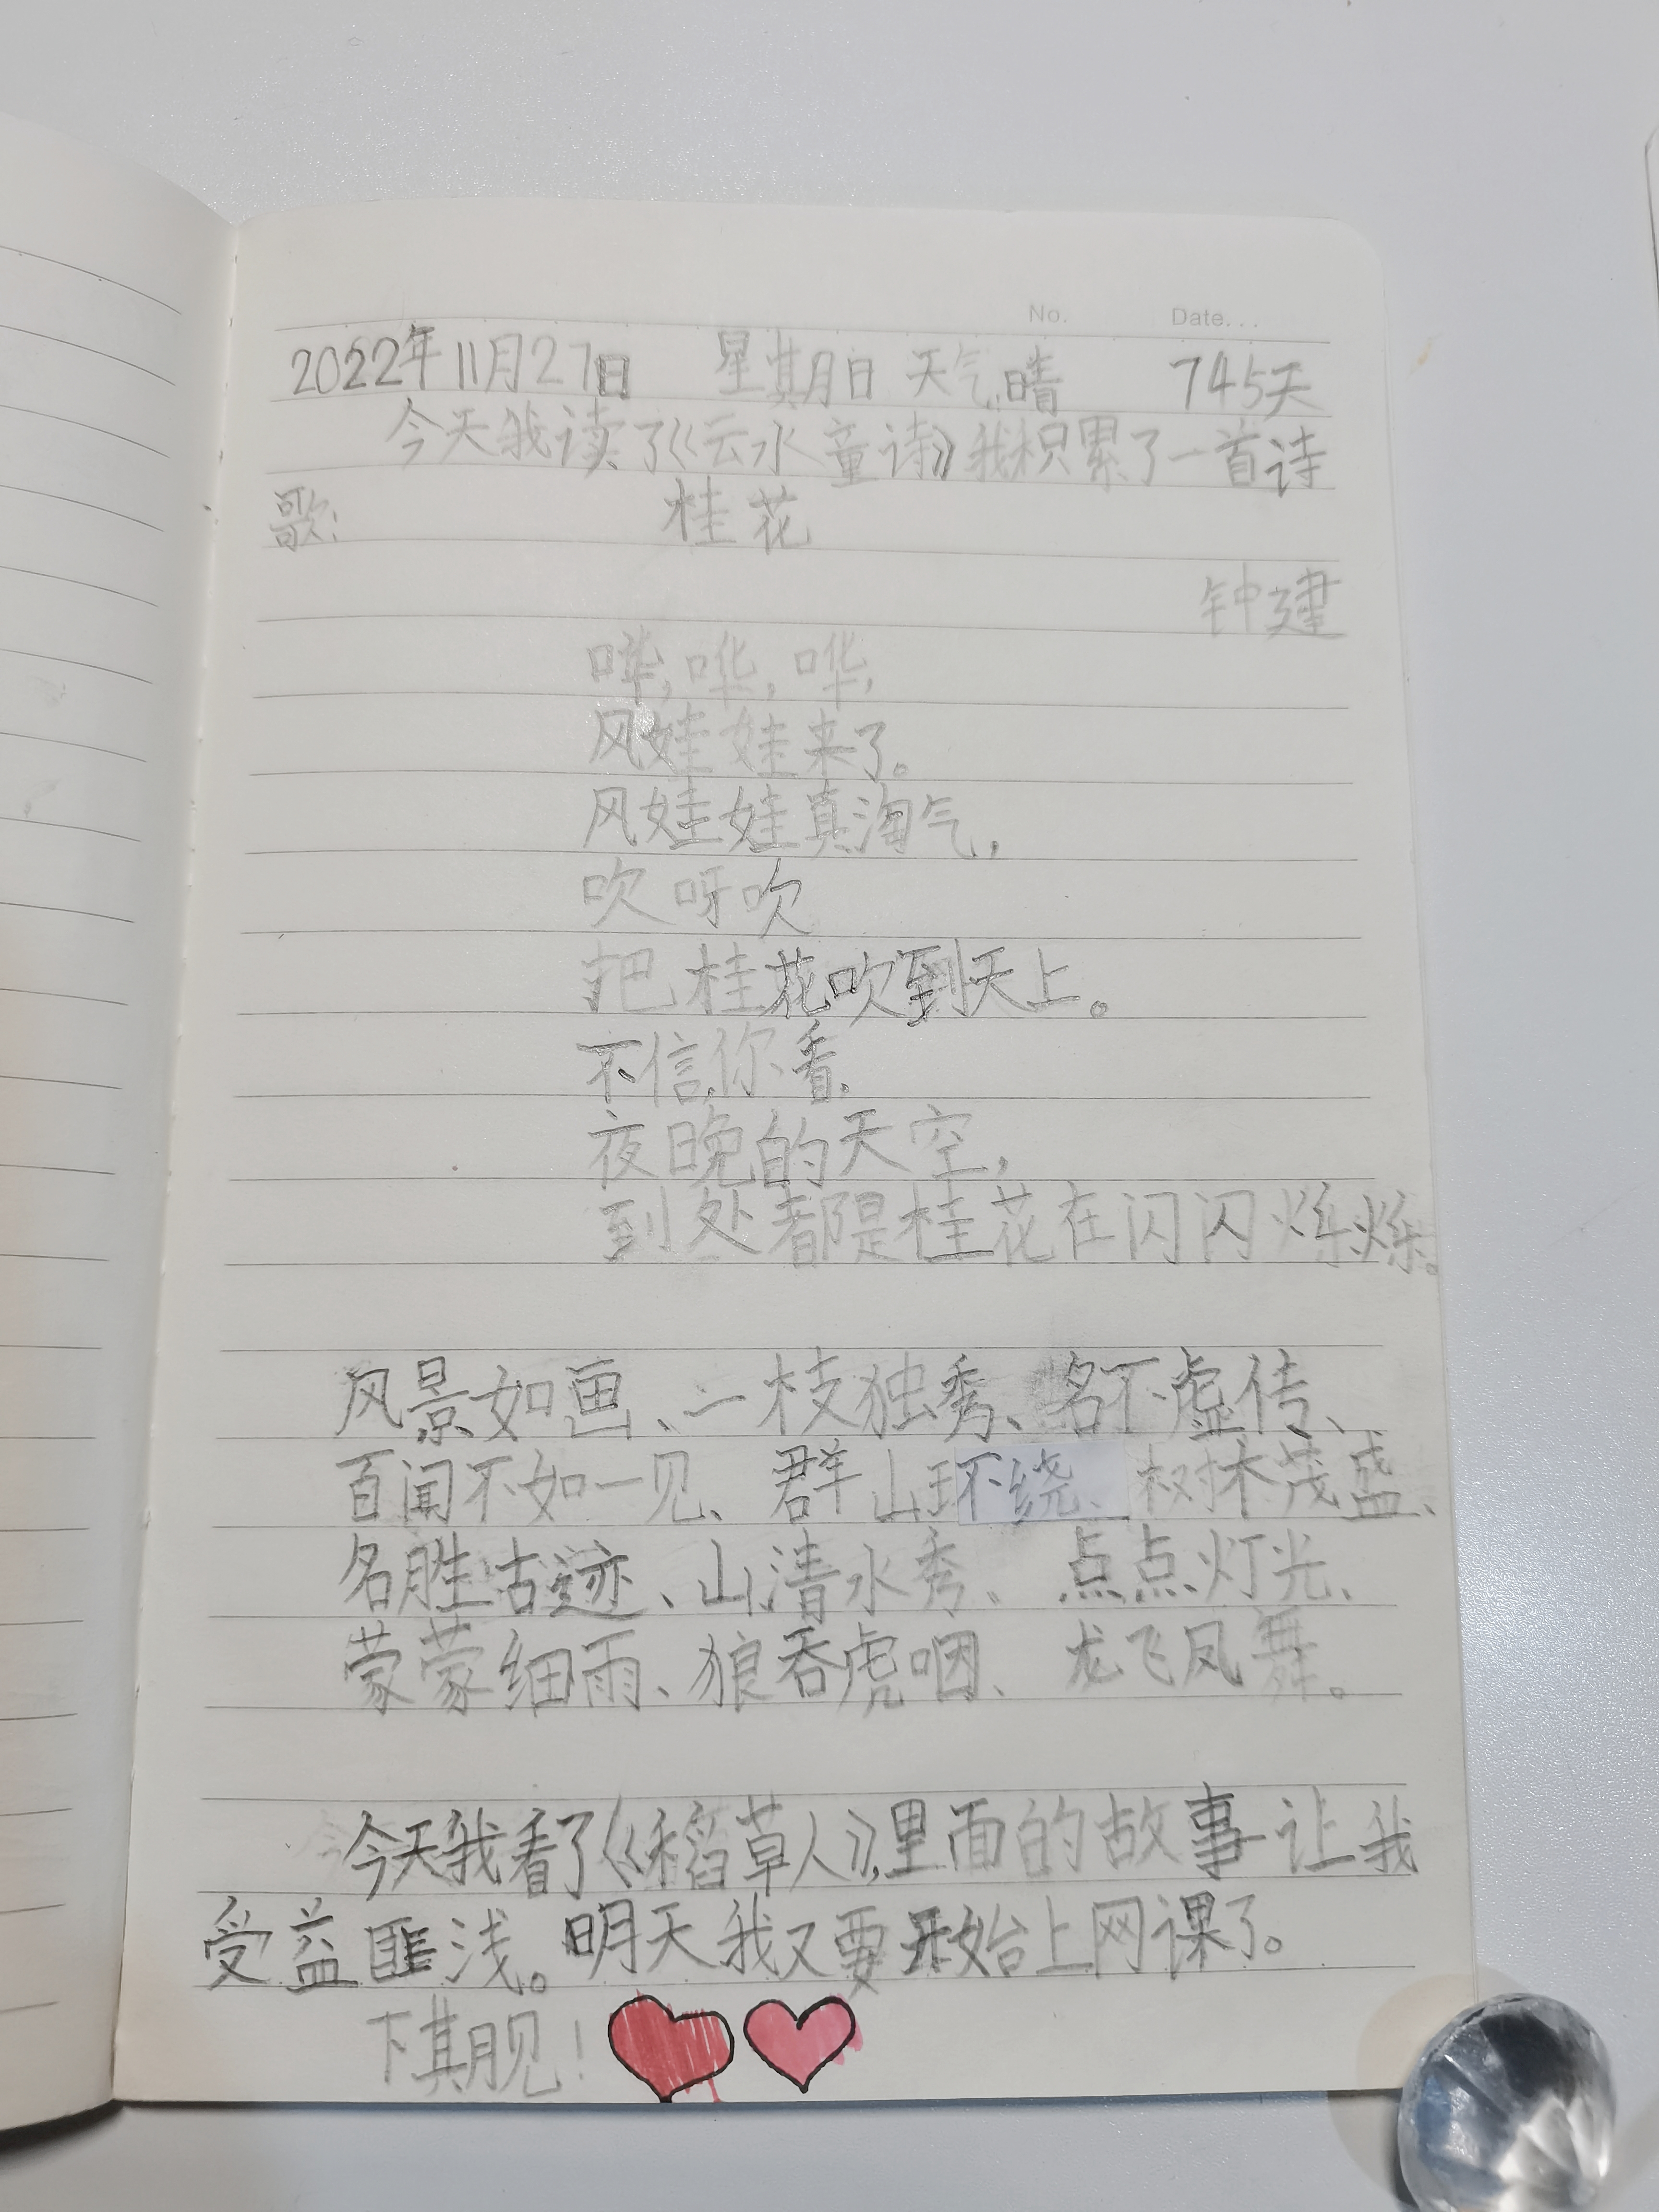 No. Date...
2022年11月27日 星期日 天气晴 745天
今天我读了《云水童诗》我积累了一首诗
歌: 桂花
钟建
哗,哗,哗,
风娃娃来了。
风娃娃真淘气,
吹呀吹
把桂花吹到天上。
不信,你看,
夜晚的天空,
到处都是桂花在闪闪烁烁。
风景如画、一枝独秀、名不虚传、
百闻不如一见、群山环绕、树木茂盛、
名胜古迹、山清水秀、点点灯光、
蒙蒙细雨、狼吞虎咽、龙飞凤舞。
今天我看了《稻草人》,里面的故事让我
受益匪浅。明天我又要开始上网课了。
下期见!